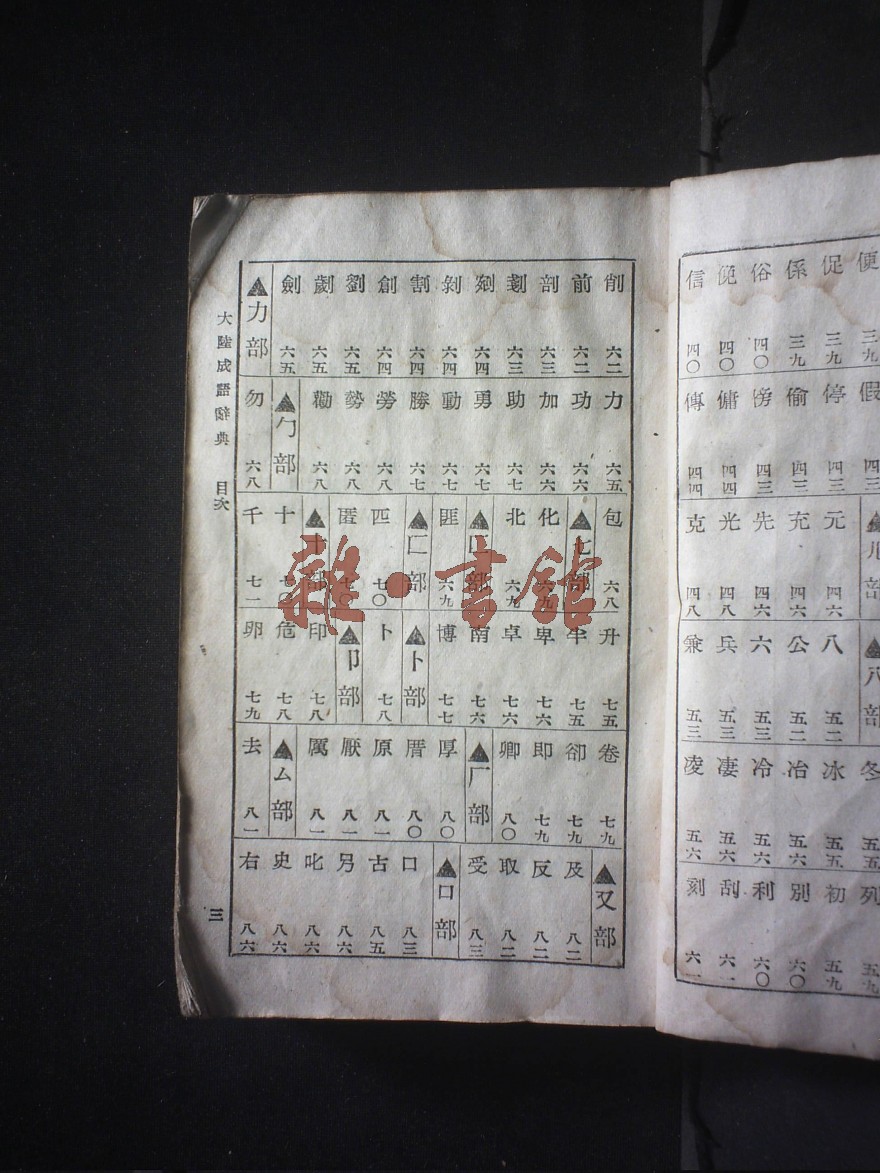 便 三九
促 三九
係 三九
俗 四〇
俛 四〇
信 四〇
假 四三
停 四三
偷 四三
傍 四三
傭 四四
傳 四四
▲儿部
元 四六
充 四六
先 四六
光 四八
克 四八
▲八部
八 五二
公 五二
六 五三
兵 五三
兼 五三
冬 五五
冰 五五
冶 五六
冷 五六
凄 五六
凌 五六
列 五九
初 五九
別 六〇
利 六〇
刮 六一
刻 六一
大陸成語辭典 目次
三
削 六二
前 六二
剖 六三
剗 六三
剜 六四
剝 六四
割 六四
創 六四
劉 六五
劇 六五
劍 六五
▲力部
力 六五
功 六六
加 六六
助 六七
勇 六七
動 六七
勝 六七
勞 六八
勢 六八
勸 六八
▲勹部
勿 六八
包 六八
▲匕部
化
北 六九
▲匚部
匪 六九
▲匸部
匹 七〇
匿 七〇
▲十部
十 七〇
千 七一
升 七五
半 七五
卑 七六
卓 七六
南 七六
博 七七
▲卜部
卜 七八
▲卩部
印 七八
危 七八
卵 七九
卷 七九
卻 七九
即 七九
卿 八〇
▲厂部
厚 八〇
厝 八〇
原 八一
厭 八一
厲 八一
▲厶部
去 八一
▲又部
及 八二
反 八二
取 八二
受 八三
▲口部
口 八三
古 八五
另 八六
叱 八六
史 八六
右 八六
雜·書館